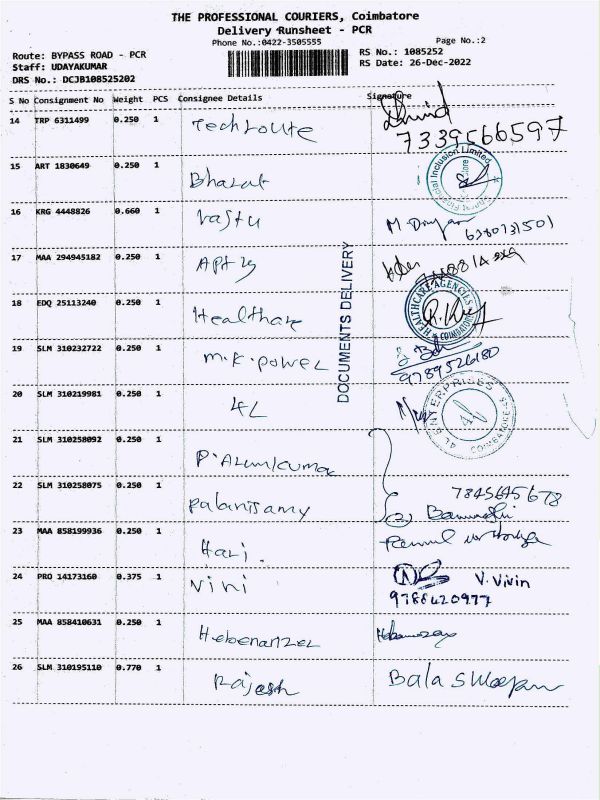 THE PROFESSIONAL COURIERS, Coimbatore
Delivery Runsheet - PCR
Phone No.:0422-3505555
Page No.:2
Route: BYPASS ROAD - PCR
RS No.: 1085252
Staff: UDAYAKUMAR
RS Date: 26-Dec-2022
DRS No.: DCJB108525202
S No Consignment No Weight PCS Consignee Details Signature
14 TRP 6311499 0.250 1 Techroute
7339566597
15 ART 1830649 0.250 1 Bharat
Financial Inclusion Limited
16 KRG 4448826 0.660 1 Vastu M.
17 MAA 294945182 0.250 1
DOCUMENTS DELIVERY
18 EDQ 25113240 0.250 1 Healthare
HEALTHCARE AGENCIES
COIMBATORE
R.
19 SLM 310232722 0.250 1 M.K.power
9789526180
20 SLM 310219981 0.250 1 4L
4L ENTERPRISES
COIMBATORE
21 SLM 310258092 0.250 1 P.Arunkumar
22 SLM 310258075 0.250 1 Palanisamy
7845645678
(2)
23 MAA 858199936 0.250 1 Hari.
24 PRO 14173160 0.375 1 Vini V. Vivin
9788420977
25 MAA 858410631 0.250 1 Hebenanzer
26 SLM 310195110 0.770 1 Rajesh Bala